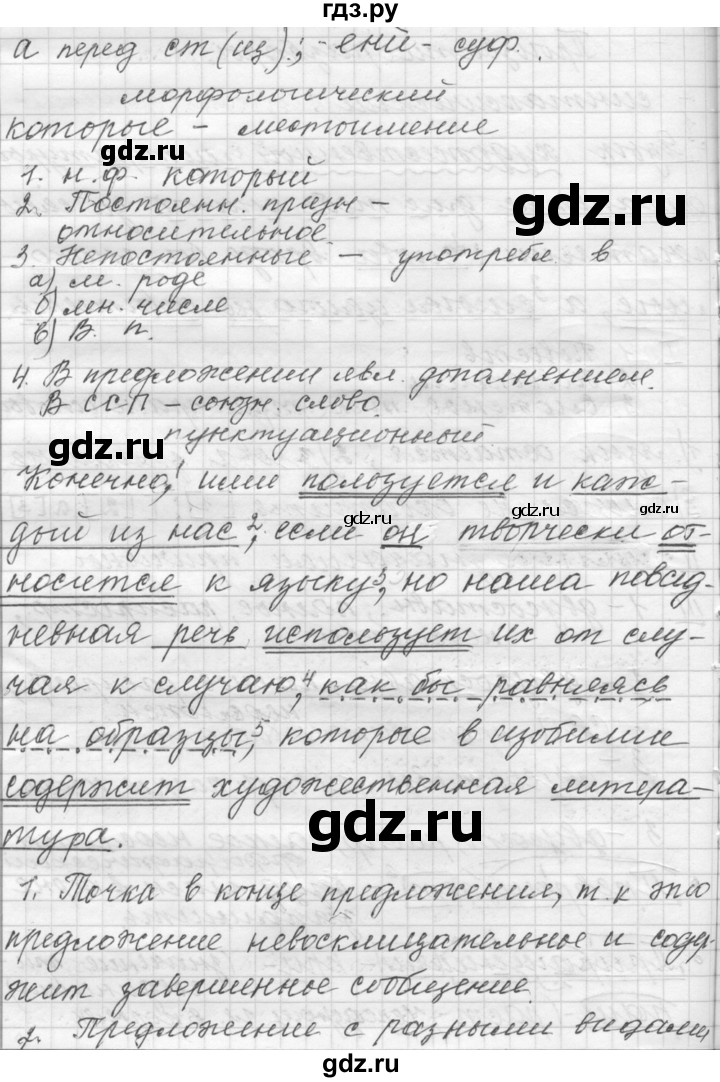 гдз.ру
а перед ст(щ).; -ений- суф.
морфологический
которые - местоимение
gdz.ru
1. н.ф. который
gdz.ru
2. Постоянн. призн -
относительное
3. Непостоянные - употребл. в
а) м. роде
б) мн. числе
в) В. п.
gdz.ru
4. В предложении явл. дополнением.
В ССП - союзн. слово.
gdz.ru
пунктуационный
Конечно,¹ ими пользуется и каж-
gdz.ru
gdz.ru
дый из нас,² если он творчески от-
носится к языку,³ но наша повсед-
невная речь использует их от слу-
чая к случаю,⁴ как бы равняясь
на образцы,⁵ которые в изобилии
содержит художественная литера-
gdz.ru
тура.
1. Точка в конце предложения, т.к это
gdz.ru
предложение невосклицательное и содер-
жит завершенное сообщение.
2. Предложение с разными видами
gdz.ru